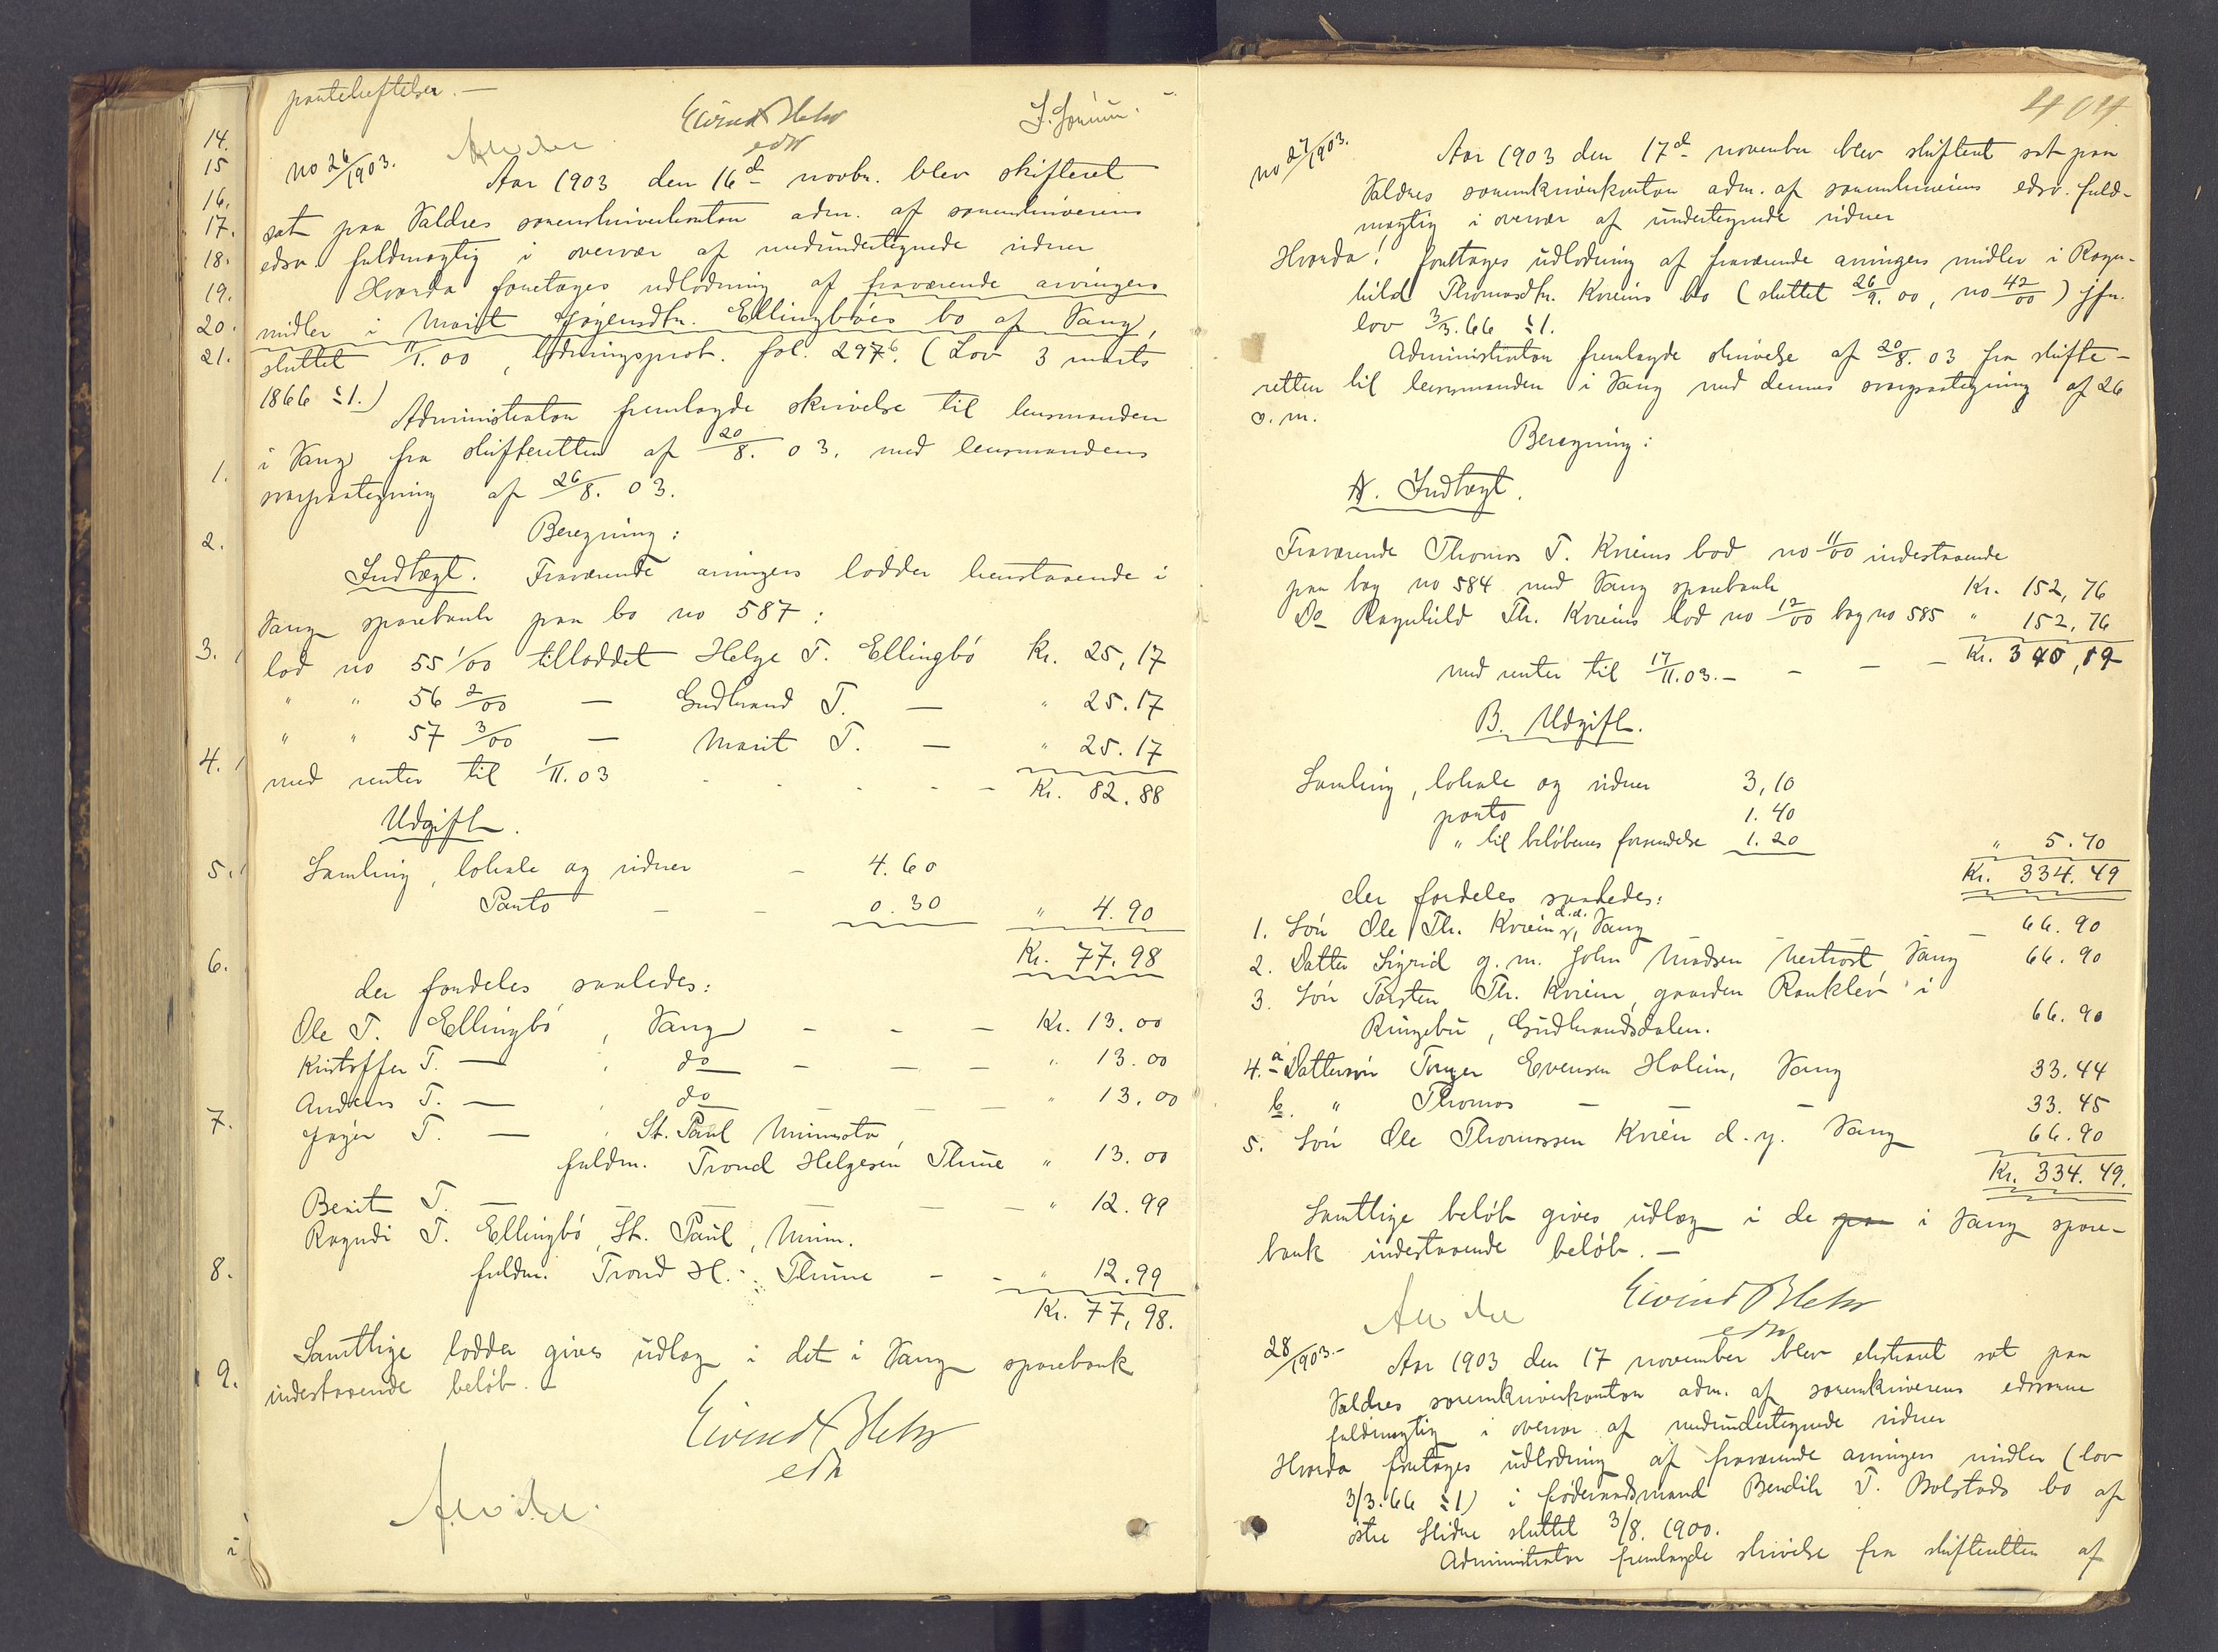 panteheftelser. —
Eivind Blehr
edsv
no 26/1903.
Aar 1903 den 16d novbr. blev skifteret
sat paa Valdres sorenskriverkontor adm. af sorenskriverens
edsv. fuldmægtig i overvær af medundertegnede vidner
Hvorda foretoges udlodning af fraværende arvingers
midler i Marit Jøgensdtr. Ellingbøes bo af Vang,
sluttet 11/1.00, lodningsprot. fol. 297b. (Lov 3 marts
1866 § 1.)
Administrator fremlagde skrivelse til lensmanden
i Vang fra skifteretten af 20/8. 03. med lensmandens
svarpaategning af 26/8. 03.
Beregning:
Indtægt. Fraværende arvingers lodder henstaaende i
Vang sparebank paa bo no 587:
lod no 55 1/00 tilloddet Helge T. Ellingbø Kr. 25,17
" " 56 2/00 — Gudbrand T. — " 25.17
" " 57 3/00 — Marit T. — " 25.17
med renter til 1/11.03 - - - - Kr. 82.88
Udgift.
Samling, lokale og vidner - 4.60
Porto - - 0.30 " 4.90
Kr. 77.98
der fordeles saaledes:
Ole T. Ellingbø, Vang - - - Kr. 13.00
Kristoffer T. — , do - - - " 13.00
Anders T. — , do - - - " 13.00
Jøger T. — , St. Paul Minnesota,
fuldm. Trond Helgesen Thune " 13.00
Berit T. — — — — — " 12.99
Ragndi T. Ellingbø, St. Paul, Minn.
fuldm. Trond H. Thune - - " 12.99
Kr. 77,98.
Samtlige lodder gives udlæg i det i Vang sparebank
indestaaende beløb. —
Eivind Blehr
edsv
14.
15
16.
17.
18.
19.
20.
21.
1.
2.
3.
4.
5.
6.
7.
8.
9.
404
no 27/1903.
Aar 1903 den 17d november blev skifteret sat paa
Valdres sorenskriverkontor adm. af sorenskriverens edsv. fuld-
mægtig i overvær af undertegnede vidner
Hvorda! foretoges udlodning af fraværende arvingers midler i Ragn-
hild Thomasdtr. Kviens bo (sluttet 26/9. 00, no 42/00) jfr.
lov 3/3.66 § 1.
Administrator fremlagde skrivelse af 20/8. 03 fra skifte-
retten til lensmanden i Vang med dennes svarpaategning af 26
s. m.
Beregning:
A. Indtægt.
Fraværende Thomas T. Kviens lod no 11/00 indestaaende
paa bog no 584 med Vang sparebank Kr. 152,76
Do Ragnhild Th. Kviens lod no 12/00 bog no 585 " 152,76
med renter til 17/11.03. - - - - Kr. 340,19
B. Udgift.
Samling, lokale og vidner 3,10
porto 1.40
" til beløbenes forsendelse 1.20 " 5.70
Kr. 334.49
der fordeles saaledes:
1. Søn Ole Th. Kvien d.æ., Vang - - - 66.90
2. Datter Sigrid g. m. John Madsen Nertrøst, Vang 66.90
3. Søn Torsten Th. Kvien, gaarden Rankleiv i
Ringebu, Gudbrandsdalen. 66.90
4. a Dattersøn Torger Evensen Holien, Vang 33.44
b. " Thomas — — — 33.45
5. Søn Ole Thomassen Kvien d. y. Vang 66.90
Kr. 334.49.
Samtlige beløb gives udlæg i de paa i Vang spare-
bank indestaaende beløb. —
Eivind Blehr
edsv
28/1903. -
Aar 1903 den 17 november blev ekstraret sat paa
Valdres sorenskriverkontor adm. af sorenskriverens edsvorne
fuldmægtig i overvær af medundertegnede vidner
Hvorda foretoges udlodning af fraværende arvingers midler (lov
3/3.66 § 1) i føderaadsmand Bendik T. Bolstads bo af
østre Slidre sluttet 3/8. 1900.
Administrator fremlagde skrivelse fra skifteretten af